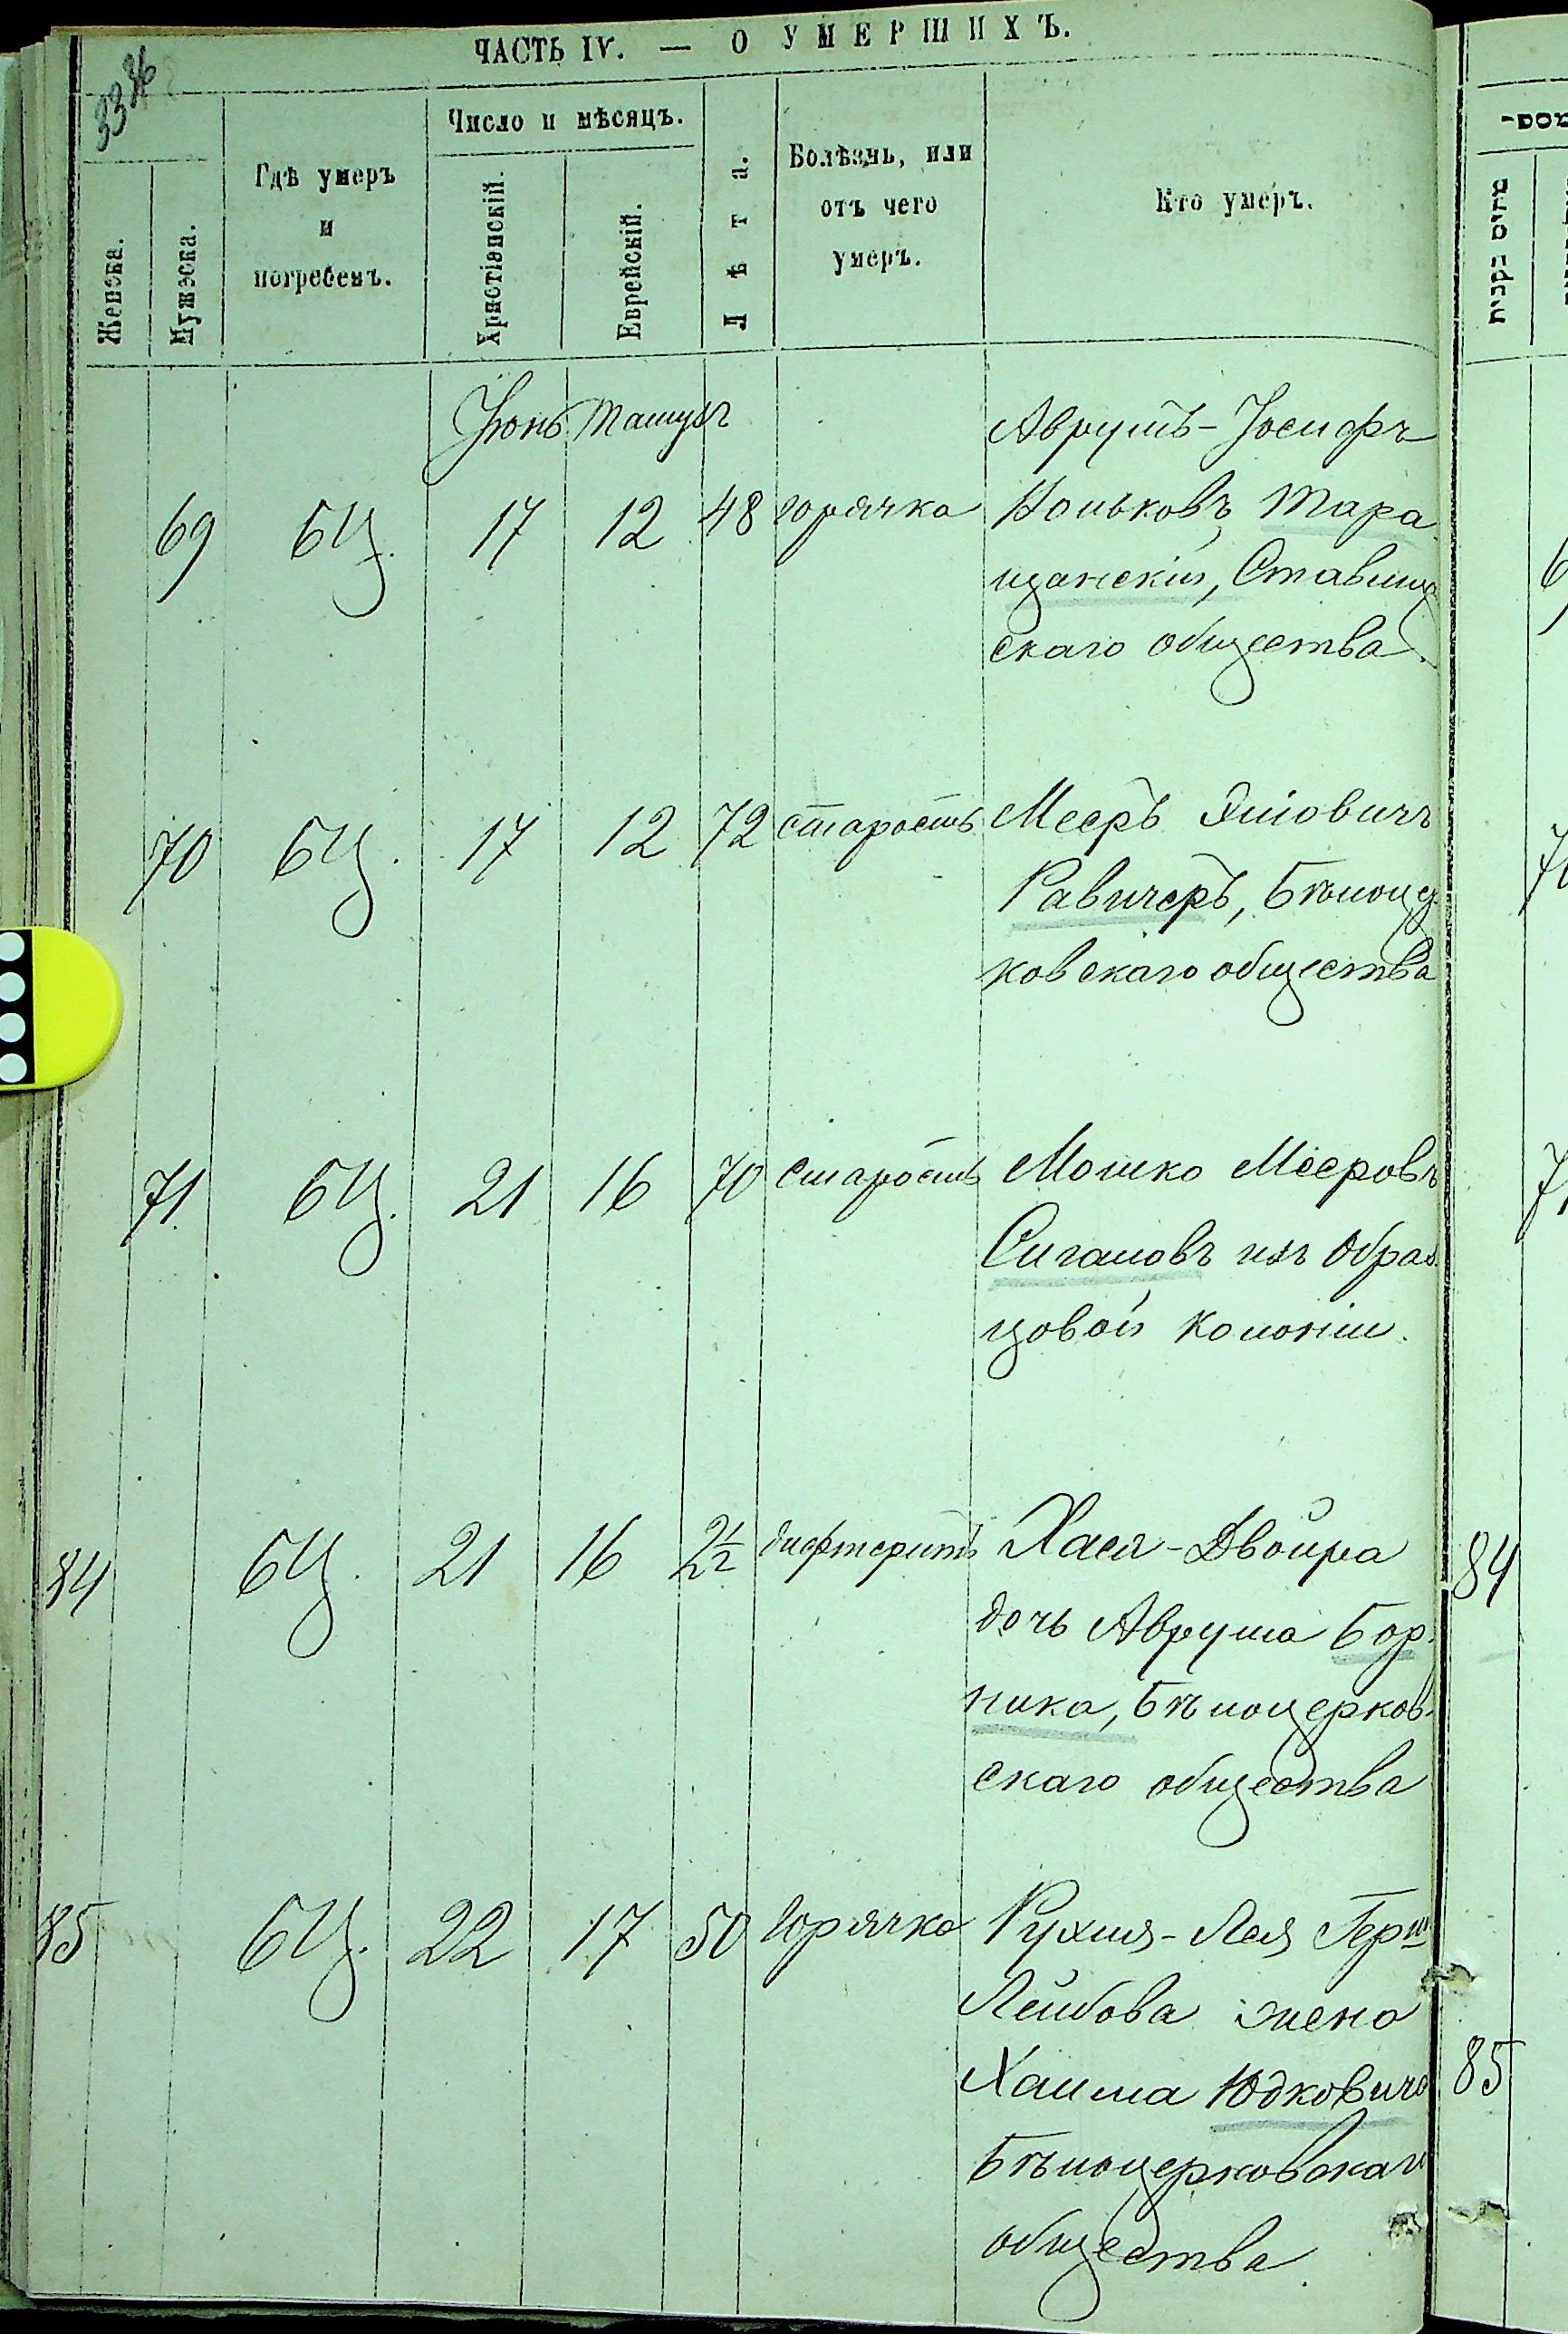 ЧАСТЬ IV. — О УМЕРШИХЪ.
33 36
Женска.
Мужеска.
Гдѣ умеръ
и
погребенъ.
Число и мѣсяцъ.
Христіанскій.
Еврейскій.
Лѣта.
Болѣзнь, или
отъ чего
умеръ.
Кто умеръ.
Іюнь Тамузъ
Аврумъ-Іосифъ
69 БЦ. 17 12 48 горячка Іоньковъ Тара
щанскій, Ставищ
скаго общества.
70 БЦ. 17 12 72 старость Мееръ Эліовичъ
Равичеръ, Бѣлоцер
ковскаго общества
71. БЦ. 21 16 70 старость Мошко Мееровъ
Сигаловъ изъ Образ
цовой колоніи.
84 БЦ. 21 16 2½ дифтеритъ Хася-Двойра
дочь Аврума Бор
ника, Бѣлоцерков-
скаго общества
85 БЦ. 22 17 50 горячка Рухля-Лея Герш
Лейбова жена
Хаима Юдковича
Бѣлоцерковскаго
общества.
84
85